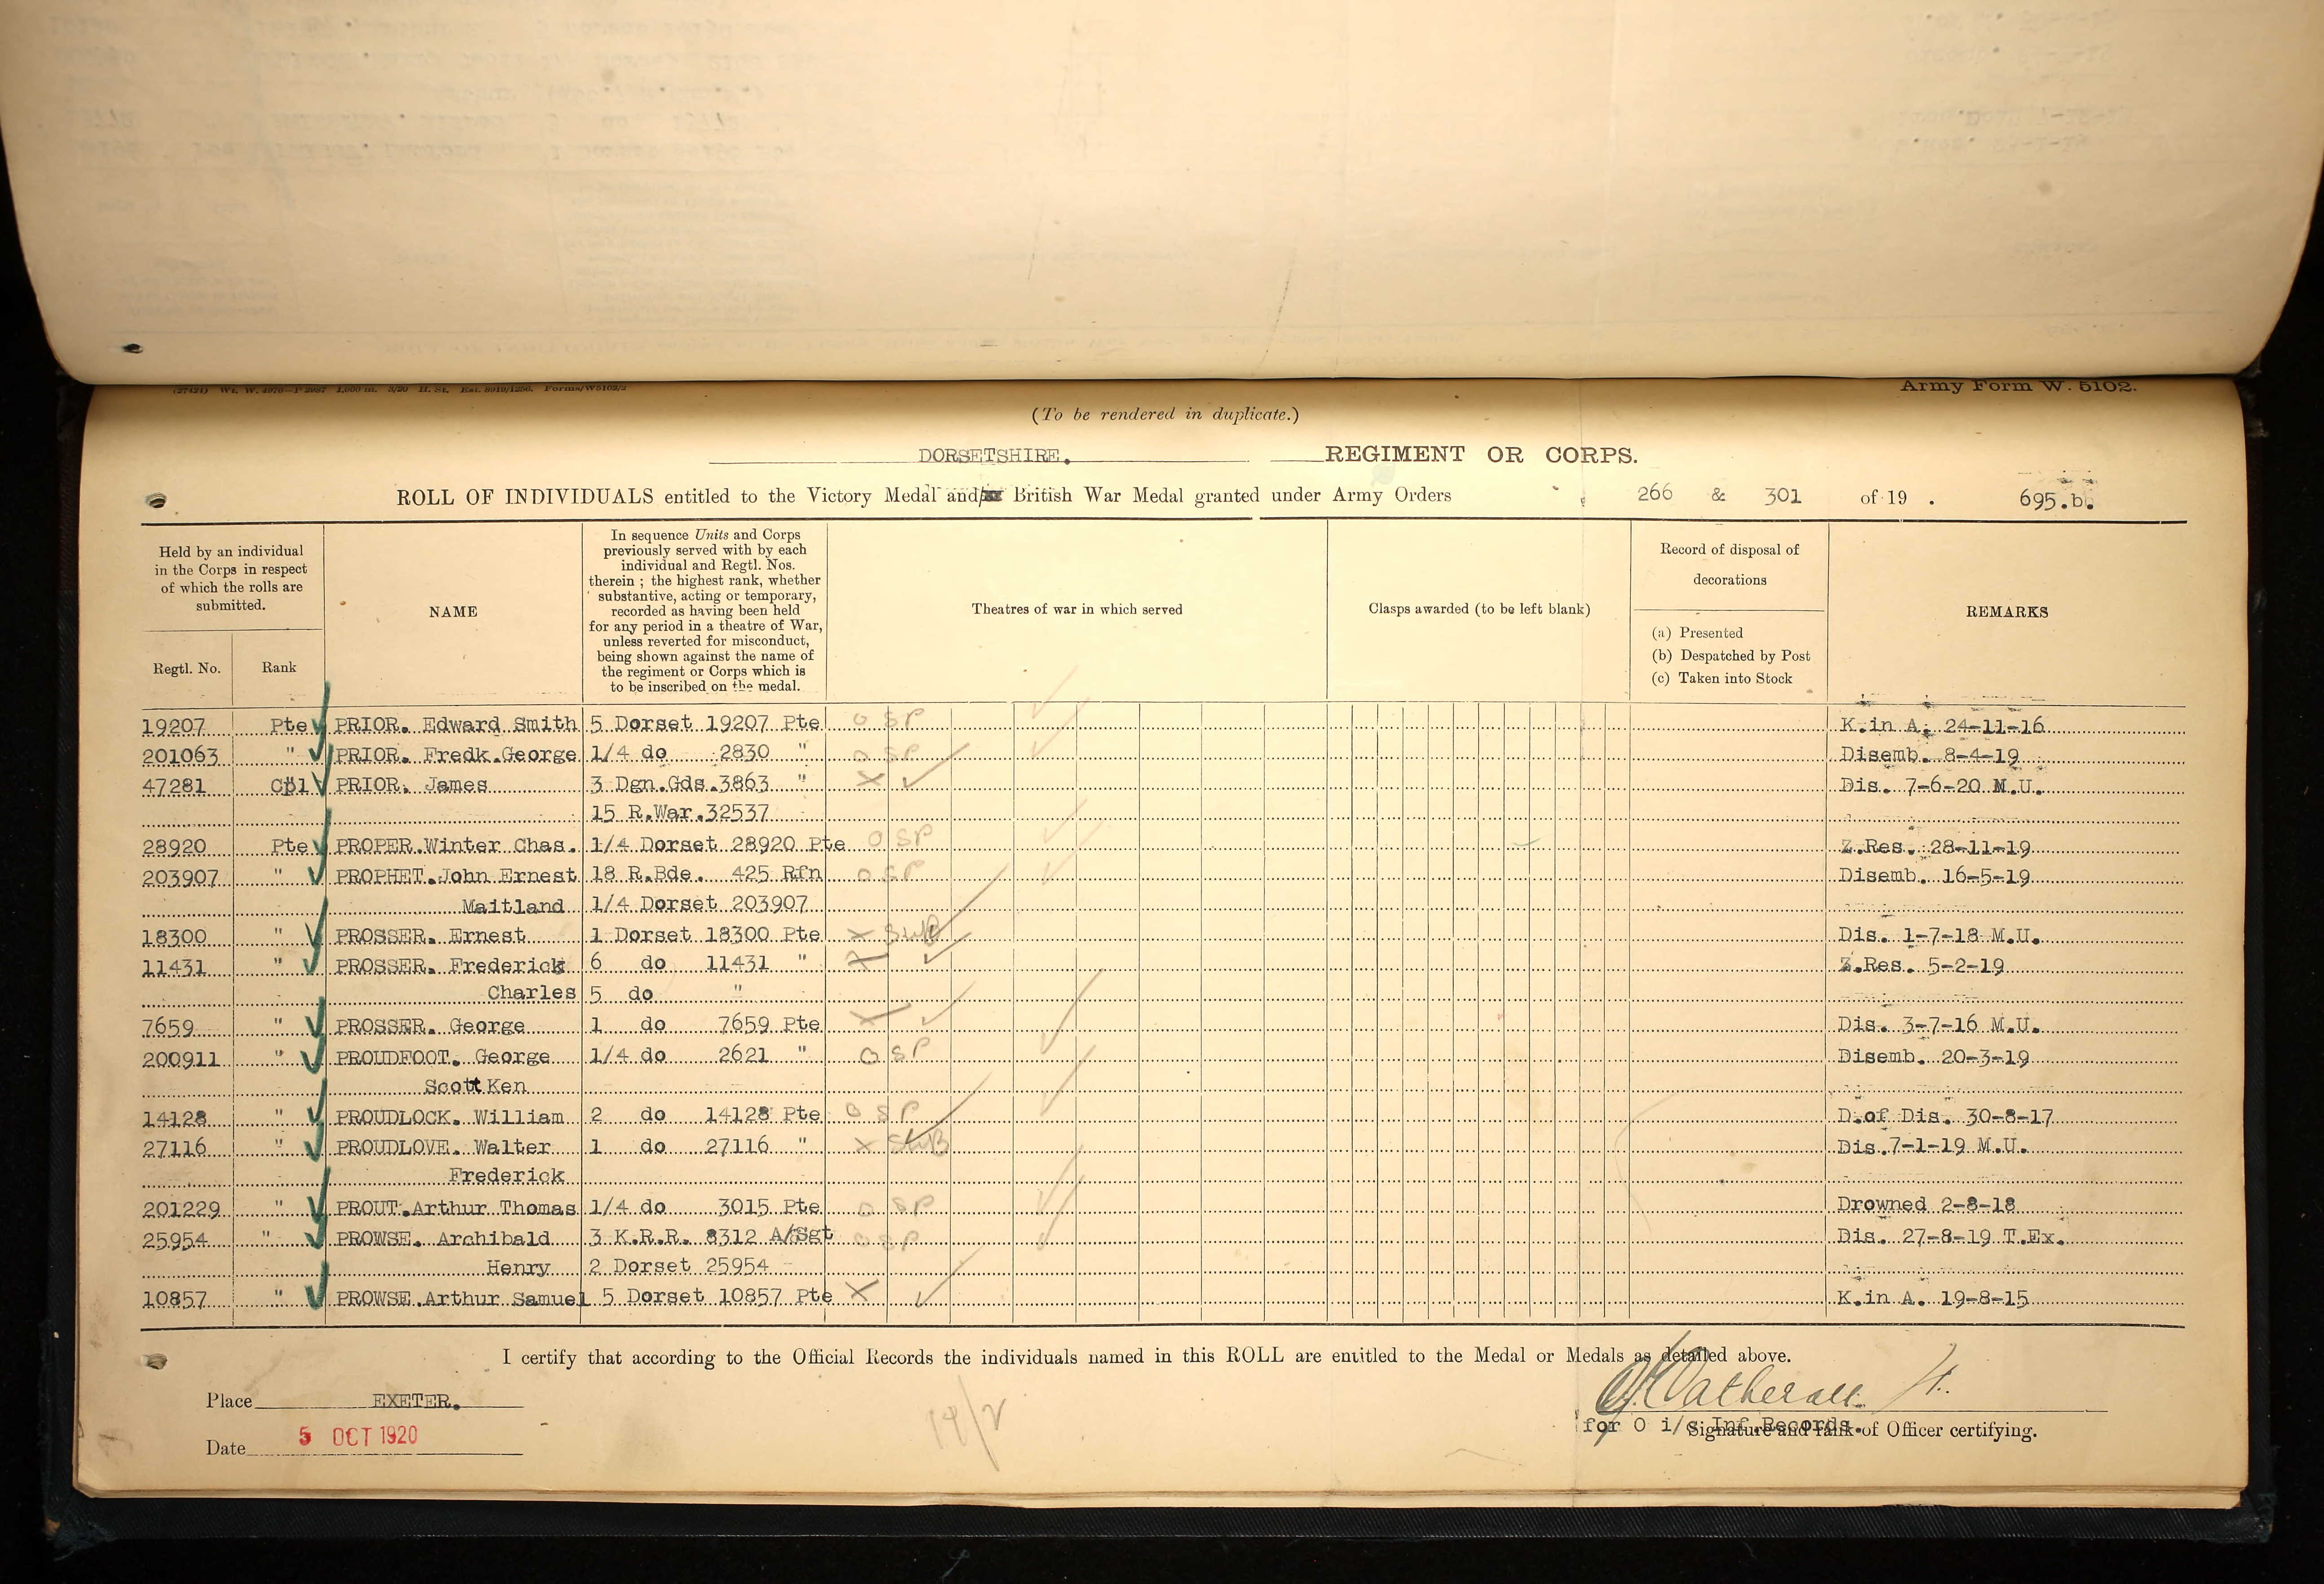 Army Form W. 5102.
(To be rendered in duplicate.)
DORSETSHIRE. REGIMENT OR CORPS.
ROLL OF INDIVIDUALS entitled to the Victory Medal and/ British War Medal granted under Army Orders 266 & 301 of 19 . 695.b.
Held by an individual in the Corps in respect of which the rolls are submitted.
Regtl. No.
Rank
NAME
In sequence Units and Corps
previously served with by each
individual and Regtl. Nos.
therein ; the highest rank, whether
substantive, acting or temporary,
recorded as having been held
for any period in a theatre of War,
unless reverted for misconduct,
being shown against the name of
the regiment or Corps which is
to be inscribed on the medal.
Theatres of war in which served
Clasps awarded (to be left blank)
Record of disposal of
decorations
(a) Presented
(b) Despatched by Post
(c) Taken into Stock
REMARKS
19207 Pte PRIOR. Edward Smith 5 Dorset 19207 Pte O SP K.in A. 24-11-16
201063 " PRIOR. Fredk.George 1/4 do 2830 " O SP Disemb. 8-4-19
47281 Cpl PRIOR. James 3 Dgn.Gds.3863 " X Dis. 7-6-20 M.U.
15 R.War.32537
28920 Pte PROPER.Winter Chas. 1/4 Dorset 28920 Pte O SP Z.Res. 28-11-19
203907 " PROPHET.John Ernest 18 R.Bde. 425 Rfn O SP Disemb. 16-5-19
Maitland 1/4 Dorset 203907
18300 " PROSSER. Ernest 1 Dorset 18300 Pte X SWB Dis. 1-7-18 M.U.
11431 " PROSSER. Frederick 6 do 11431 " X Z.Res. 5-2-19
Charles 5 do "
7659 " PROSSER. George 1 do 7659 Pte X Dis. 3-7-16 M.U.
200911 " PROUDFOOT. George 1/4 do 2621 " O SP Disemb. 20-3-19
Scott Ken
14128 " PROUDLOCK. William 2 do 14128 Pte O SP D.of Dis. 30-8-17
27116 " PROUDLOVE. Walter 1 do 27116 " X SWB Dis.7-1-19 M.U.
Frederick
201229 " PROUT.Arthur Thomas 1/4 do 3015 Pte O SP Drowned 2-8-18
25954 " PROWSE. Archibald 3 K.R.R. 8312 A/Sgt O SP Dis. 27-8-19 T.Ex.
Henry 2 Dorset 25954
10857 " PROWSE.Arthur Samuel 5 Dorset 10857 Pte X K.in A. 19-8-15
I certify that according to the Official Records the individuals named in this ROLL are entitled to the Medal or Medals as detailed above.
Place EXETER.
for O i/c Inf.Records.
Signature and rank of Officer certifying.
Date 5 OCT 1920
19/2